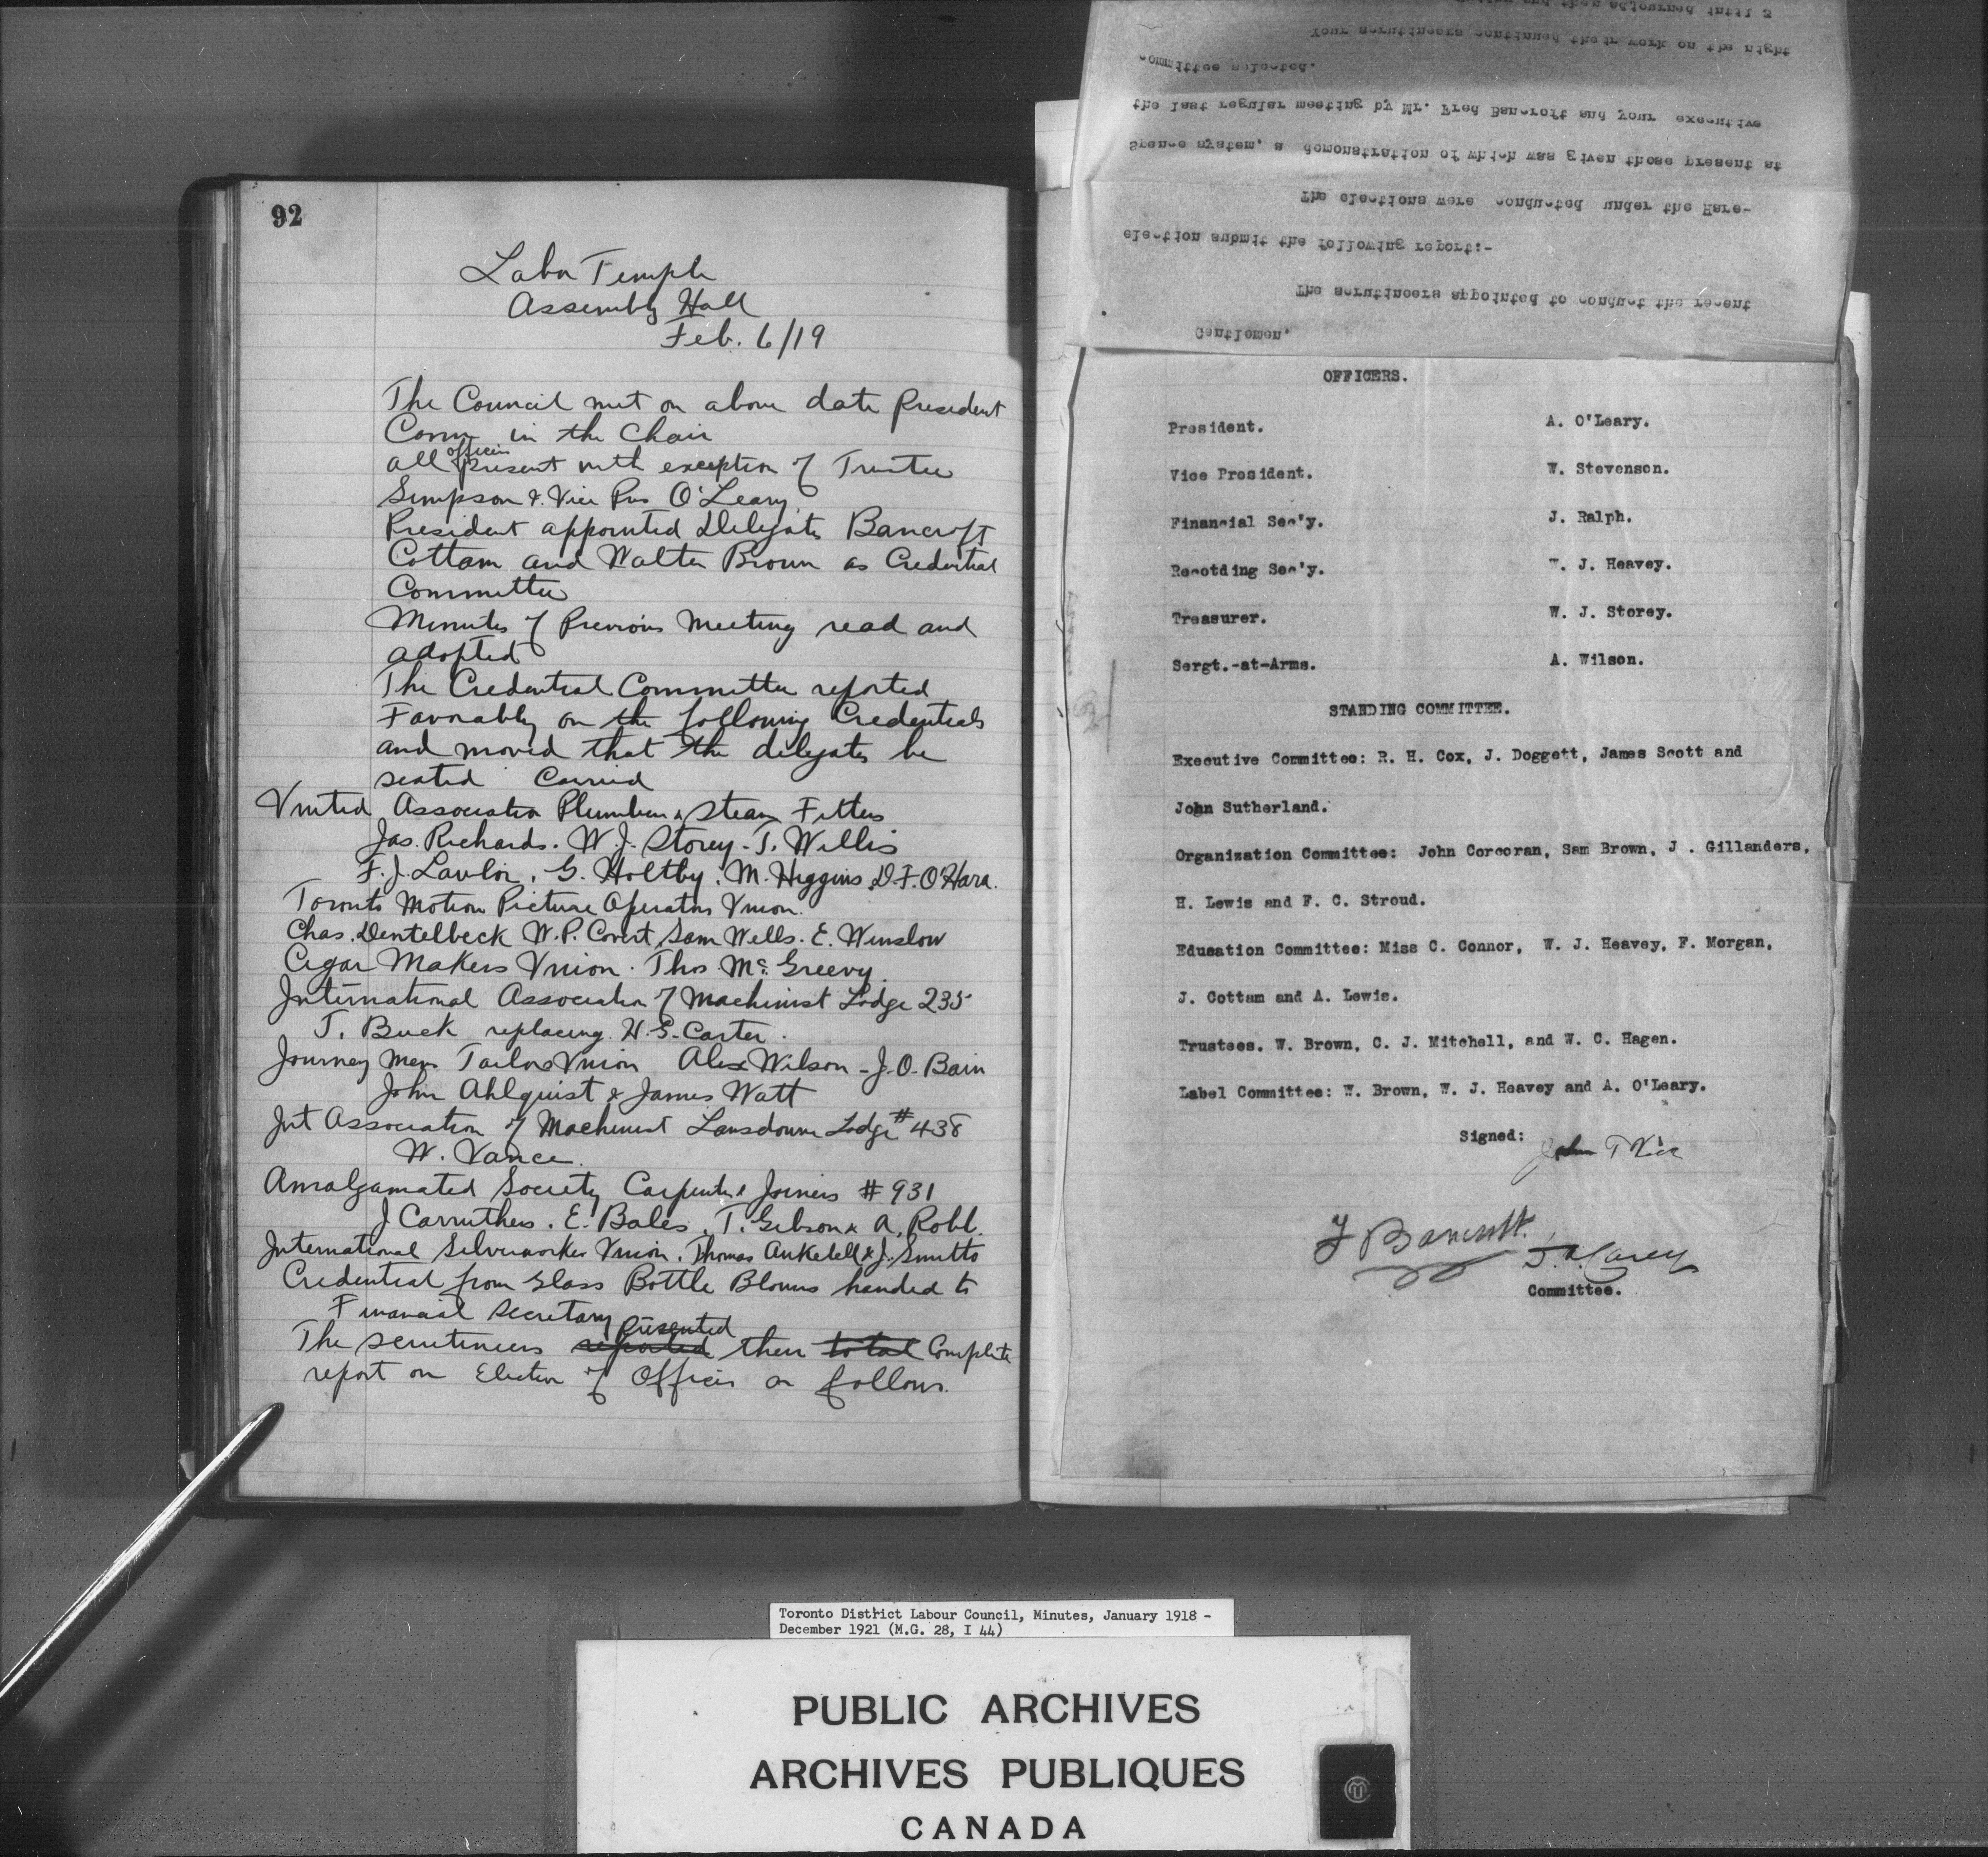 92
Labor Temple
Assembly Hall
Feb. 6/19
The Council met on above date President
Conn in the Chair
officers
all present with exception of Trustee
Simpson & Vice Pres O'Leary
President appointed Delegates Bancroft
Cottam and Walter Brown as Credential
Committee
Minutes of Previous Meeting read and
adopted
The Credential Committee reported
Favorably on the following Credentials
and moved that the delegates be
seated Carried
United Association Plumbers & Steam Fitters
Jas. Richards. W. J. Storey - T. Willis
F. J. Lawlor, G. Holtby, M. Higgins D. F. O'Hara.
Toronto Motion Picture Operators Union.
Chas. Dentelbeck W. P. Covert Sam Wells. E. Winslow
Cigar Makers Union. Thos. McGreevy.
International Association of Machinist Lodge 235
T. Buck replacing H. S. Carter.
Journey Mens Tailors Union Alex Wilson - J. O. Bain
John Ahlquist & James Watt
Int Association of Machinist Lansdowne Lodge #438
W. Vance.
Amalgamated Society Carpenters & Joiners #931
J Carruthers. E. Bales, T. Gibson & A. Robb.
International Silverworker Union. Thomas Anketell & J. Smitto
Credential from Glass Bottle Blowers handed to
Financial Secretary
presented
The scrutineers reported their total Complete
report on Election of Officers as follows.
Gentlemen,
The scrutineers appointed to conduct the recent
election submit the following report:-
The elections were conducted under the Hare-
Spence system, a demonstration of which was given those present at
the last regular meeting by Mr. Fred Bancroft and your executive
committee selected.
Your scrutineers continued their work on the night
and then adjourned until a
OFFICERS.
President. A. O'Leary.
Vice President. W. Stevenson.
Financial Sec'y. J. Ralph.
Recotding Sec'y. W. J. Heavey.
Treasurer. W. J. Storey.
Sergt.-at-Arms. A. Wilson.
STANDING COMMITTEE.
Executive Committee: R. H. Cox, J. Doggett, James Scott and
John Sutherland.
Organization Committee: John Corcoran, Sam Brown, J . Gillanders,
H. Lewis and F. C. Stroud.
Education Committee: Miss C. Connor, W. J. Heavey, F. Morgan,
J. Cottam and A. Lewis.
Trustees. W. Brown, C. J. Mitchell, and W. C. Hagen.
Label Committee: W. Brown, W. J. Heavey and A. O'Leary.
Signed: John T Vick
F Bancroft.
Carey
Committee.
Toronto District Labour Council, Minutes, January 1918 -
December 1921 (M.G. 28, I 44)
PUBLIC ARCHIVES
ARCHIVES PUBLIQUES
CANADA